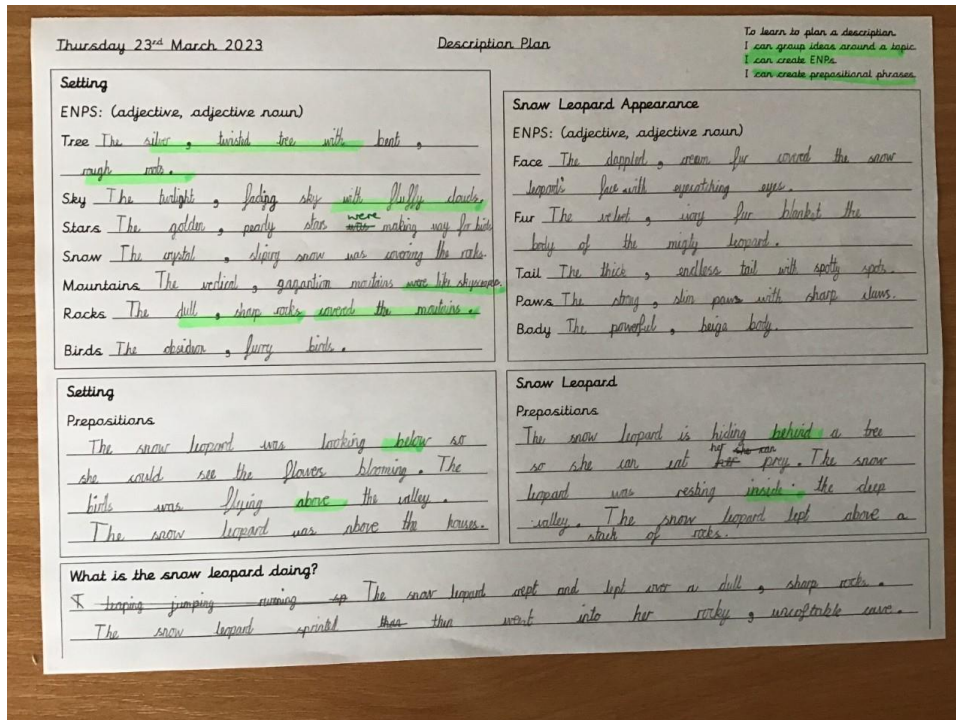 Thursday 23rd March 2023
Description Plan
To learn to plan a description
I can group ideas around a topic
I can create ENPs
I can create prepositional phrases
Setting
ENPS: (adjective, adjective noun)
Tree The silver, twisted tree with bent,
rough roots.
Sky The twilight, fading sky with fluffy clouds.
Stars The golden, pearly stars were making way for birds
Snow The crystal, slipery snow was covering the rocks.
Mountains The vertical, gagantion moutains were like skyscrapers.
Rocks The dull, sharp rocks covered the moutains.
Birds The obsidian, furry birds.
Snow Leopard Appearance
ENPS: (adjective, adjective noun)
Face The dappled, cream fur coverd the snow
leopards face with eyecatching eyes.
Fur The velvet, wavy fur blanket the
body of the migty leopard.
Tail The thick, endless tail with spotty spots.
Paws The strong, slim paws with sharp claws.
Body The powerful, beige body.
Setting
Prepositions
The snow leopard was looking below so
she could see the flowers blooming. The
birds was flying above the valley.
The snow leopard was above the houses.
Snow Leopard
Prepositions
The snow leopard is hiding behind a tree
so she can eat her prey. The snow
leopard was resting inside the deep
valley. The snow leopard lept above a
stack of rocks.
What is the snow leopard doing?
leaping jumping running The snow leopard crept and lept over a dull, sharp rocks.
The snow leopard sprinted then went into her rocky, uncoftable cave.